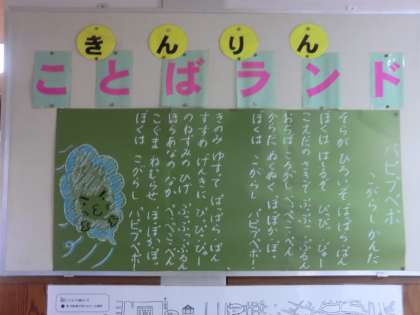 きんりん
ことばランド
パピプペポ
こがらし かんた
そらが ひろいぞ ぱっぱらぱん
ぼくは はしるぞ ぴっぴ ぴゅー
こえだの さきで ぷっぷっぷるん
おちば ころがし ぺっぺこぺん
からだ ぬくぬく ぽぽぽかぽ
ぼくは こがらし パピプペポー
きのみ ゆすって ぱっぱらぱん
すすめ げんきに ぴっぴ ぴゅー
のねずみの ひげ ぷっぷっぷるん
ほらあなの なか ぺっぺこぺん
こぐま ねむらせ ぽぽぽかぽ
ぼくは こがらし パピプペポー